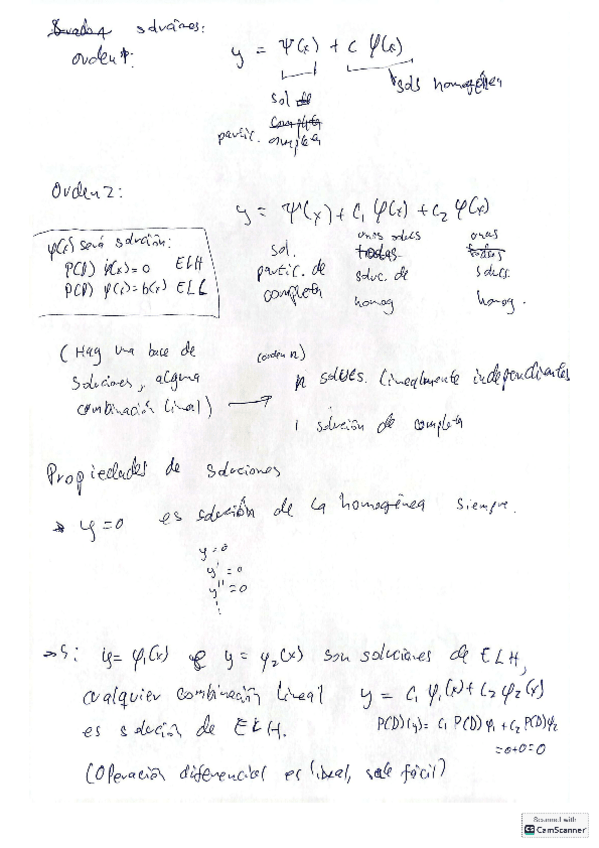 soluciones:
orden 1:
y = Ψ(x) + C φ(x)
sols homogénea
sol de
partic. completa
Orden 2:
y = Ψ(x) + C₁ φ(x) + C₂ φ(x)
φ(x) será solución:
P(D) φ(x) = 0 ELH
P(D) φ(x) = b(x) ELC
sol. partic. de completa
unas soluc. todas soluc. de homog
unas todas soluc. homog.
(Hay una base de
soluciones, alguna
combinación lineal) →
(orden n)
n soluc. linealmente independientes
1 solución de completa
Propiedades de soluciones
→ y = 0 es solución de la homogénea siempre.
y = 0
y' = 0
y'' = 0
⋮
→ Si y = φ₁(x) e y = φ₂(x) son soluciones de ELH,
cualquier combinación lineal y = C₁ φ₁(x) + C₂ φ₂(x)
es solución de ELH.
P(D)(y) = C₁ P(D) φ₁ + C₂ P(D) φ₂
= 0+0 = 0
(Operación diferencial es lineal, sale fácil)
Scanned with
CamScanner